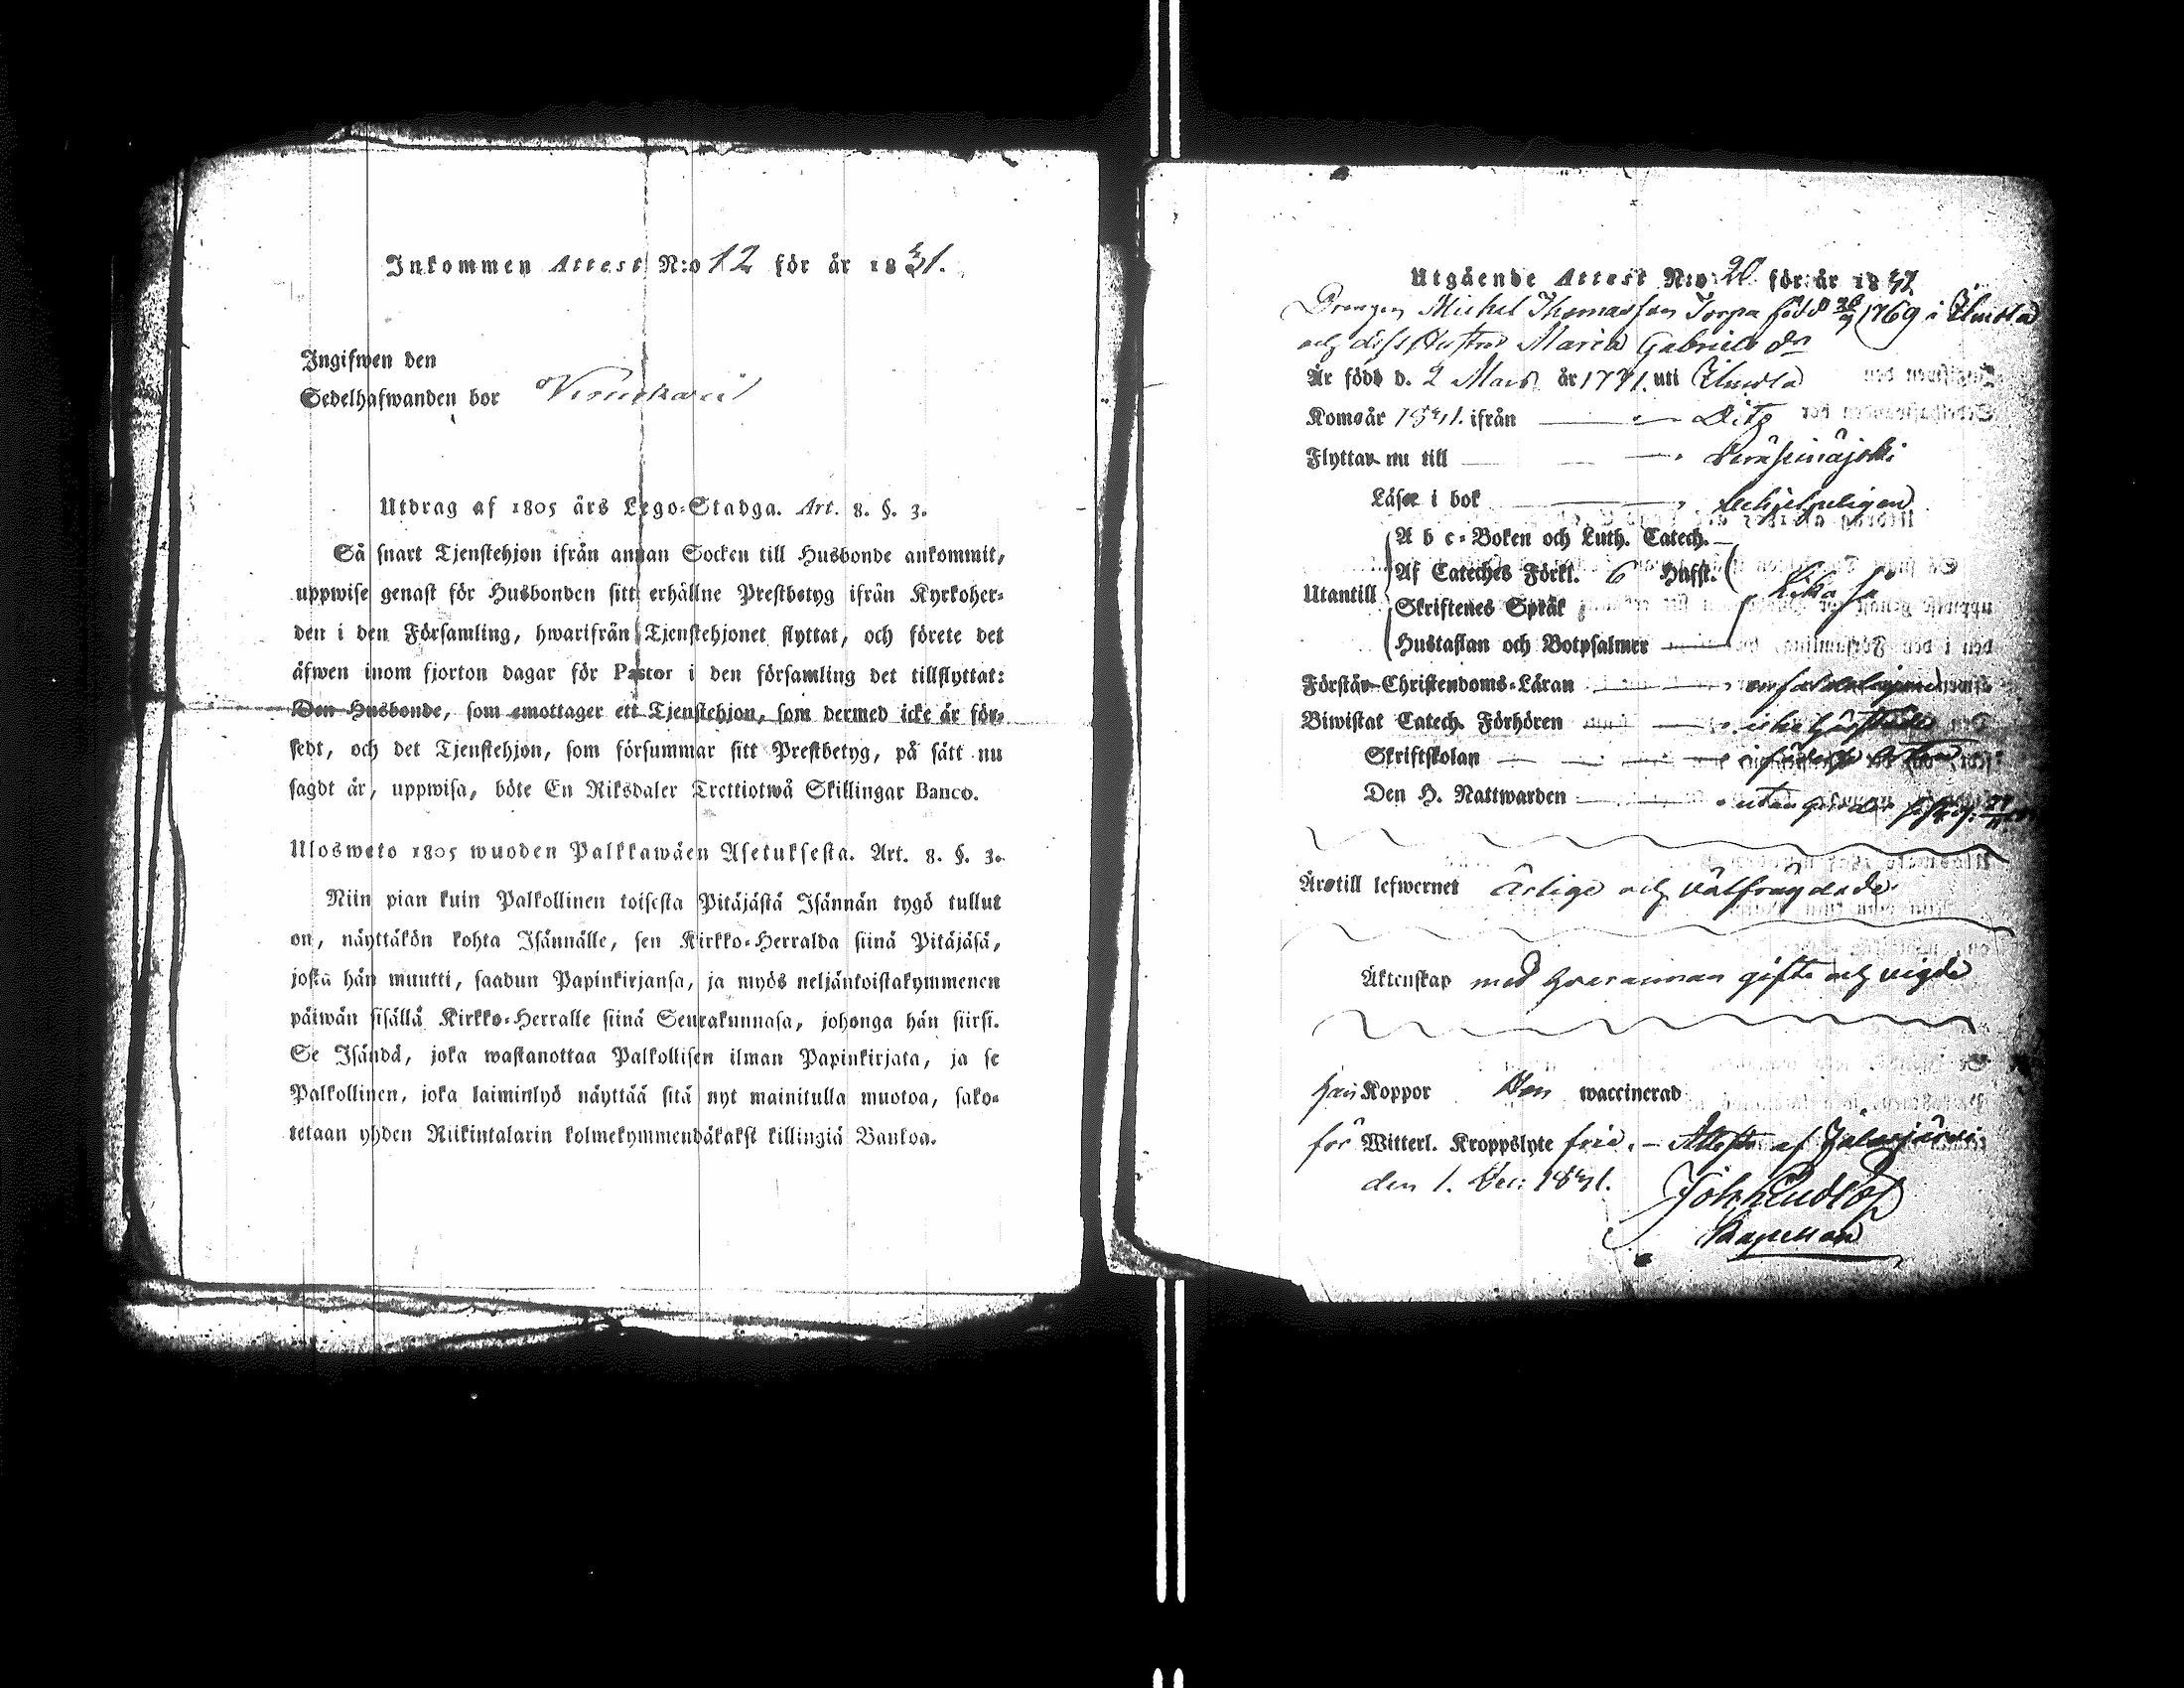 Inkommen Attest N:o 12 för år 1831.
Ingifwen den
Sedelhafwanden bor
Utdrag af 1805 års Lego-Stadga. Art. 8. §. 3.
Så snart Tjenstehjon ifrån annan Socken till Husbonde ankommit,
uppwise genast för Husbonden sitt erhållne Prestbetyg ifrån Kyrkoher-
den i den Församling, hwarifrån Tjenstehjonet flyttat, och förete det
äfwen inom fjorton dagar för Pastor i den församling det tillflyttat:
Den Husbonde, som emottager ett Tjenstehjon, som dermed icke är för-
sedt, och det Tjenstehjon, som försummar sitt Prestbetyg, på sätt nu
sagdt är, uppwisa, böte En Riksdaler Trettiotwå Skillingar Banco.
Ulosweto 1805 wuoden Palkkawäen Asetuksesta. Art. 8. §. 3.
Niin pian kuin Palkollinen toisesta Pitäjästä Isännän tygö tullut
on, näyttäkön kohta Isännälle, sen Kirkko-Herralda siinä Pitäjäsä,
josta hän muutti, saadun Papinkirjansa, ja myös neljäntoistakymmenen
päiwän sisällä Kirkko-Herralle siinä Seurakunnasa, johonga hän siirsi.
Se Isändä, joka wastanottaa Palkollisen ilman Papinkirjata, ja se
Palkollinen, joka laiminlyö näyttää sitä nyt mainitulla muotoa, sako-
tetaan yhden Riikintalarin kolmekymmendäkaksi killingiä Bankoa.
Utgående Attest N:o 20 för år 1831
Drengen Michel Thomasson Torpa född 1769 i Ilmola
och dess Hustru Maria Gabriels dr
Är född d. 2 Mars år 1771. uti Ilmola
Kom år 1831. ifrån — Dito
Flyttar nu till — Peräseinäjoki
Läser i bok
A b c-Boken och Luth. Catech.
Af Cateches Förkl. 6 Hufst.
Utantill
Skriftenes Språk
Lika så
Hustaflan och Botpsalmer
Förstår Christendoms-Läran
Biwistat Catech. Förhören
Skriftskolan
Den H. Nattwarden
Äro till lefwernet ärlige och välfrägdade
Äktenskap med hvarannan gifte och vigde
Koppor waccinerad
för Witterl. Kroppslyte frie. — Attest. af Jalasjärvi
den 1. Dec. 1831.
Kapellan